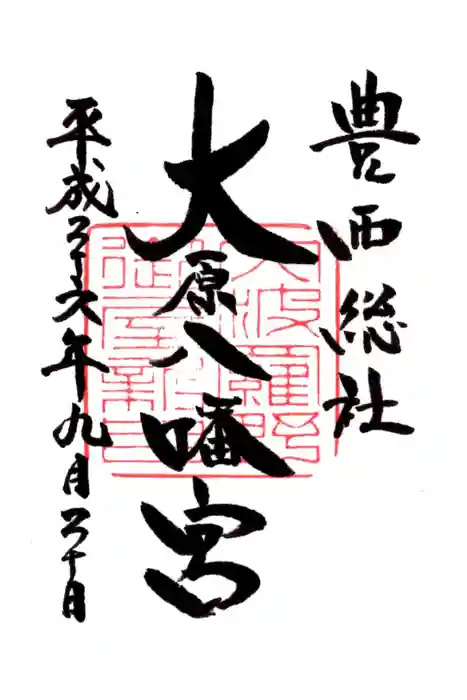 豊西総社
大原八幡宮
平成二十六年九月二十日